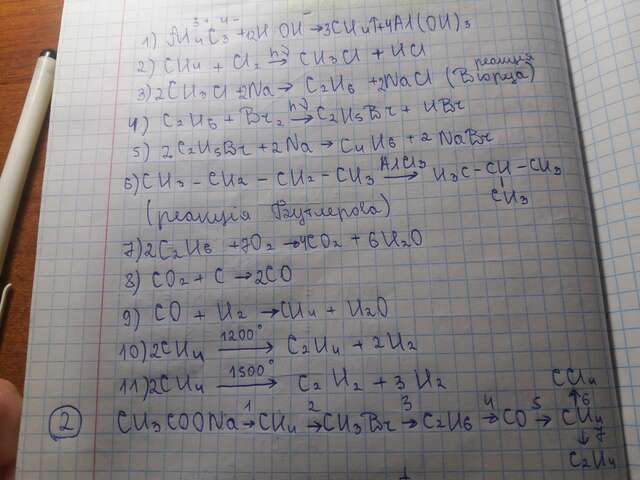 3+ 4-
1) Al4C3 + 12H OH⁻ → 3CH4↑ + 4Al(OH)3
2) CH4 + Cl2 —hν→ CH3Cl + HCl
реакція
3) 2CH3Cl + 2Na → C2H6 + 2NaCl (Вюрца)
4) C2H6 + Br2 —hν→ C2H5Br + HBr
5) 2C2H5Br + 2Na → C4H6 + 2NaBr
6) CH3 – CH2 – CH2 – CH3 —AlCl3→ H3C – CH – CH3
CH3
(реакція Бутлерова)
7) 2C2H6 + 7O2 → 4CO2 + 6H2O
8) CO2 + C → 2CO
9) CO + H2 → CH4 + H2O
10) 2CH4 —1200°→ C2H4 + 2H2
11) 2CH4 —1500°→ C2H2 + 3H2
CCl4
↑6
2 CH3COONa —1→ CH4 —2→ CH3Br —3→ C2H6 —4→ CO —5→ CH4
↓7
C2H4